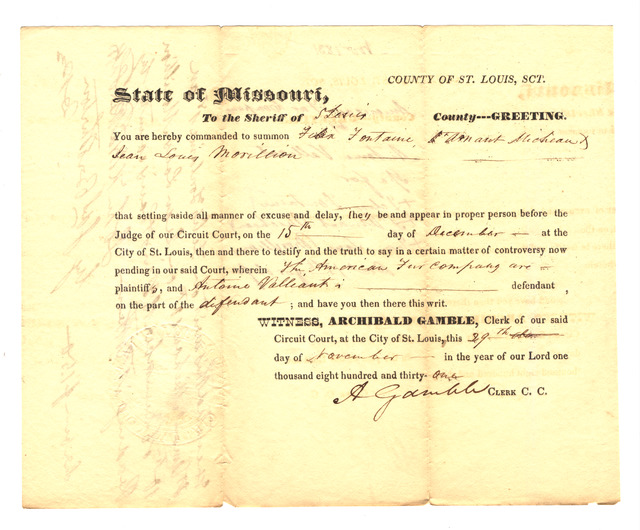 COUNTY OF ST. LOUIS, SCT.
State of Missouri,
To the Sheriff of St Louis County---GREETING.
You are hereby commanded to summon Felix Fontaine, &
Jean Louis Morillion
that setting aside all manner of excuse and delay, they be and appear in proper person before the
Judge of our Circuit Court, on the 15th day of December at the
City of St. Louis, then and there to testify and the truth to say in a certain matter of controversy now
pending in our said Court, wherein The American Fur Company are
plaintiffs, and Antoine defendant,
on the part of the defendant; and have you then there this writ.
WITNESS, ARCHIBALD GAMBLE, Clerk of our said
Circuit Court, at the City of St. Louis, this 29th
day of November in the year of our Lord one
thousand eight hundred and thirty-one
A Gamble CLERK C. C.